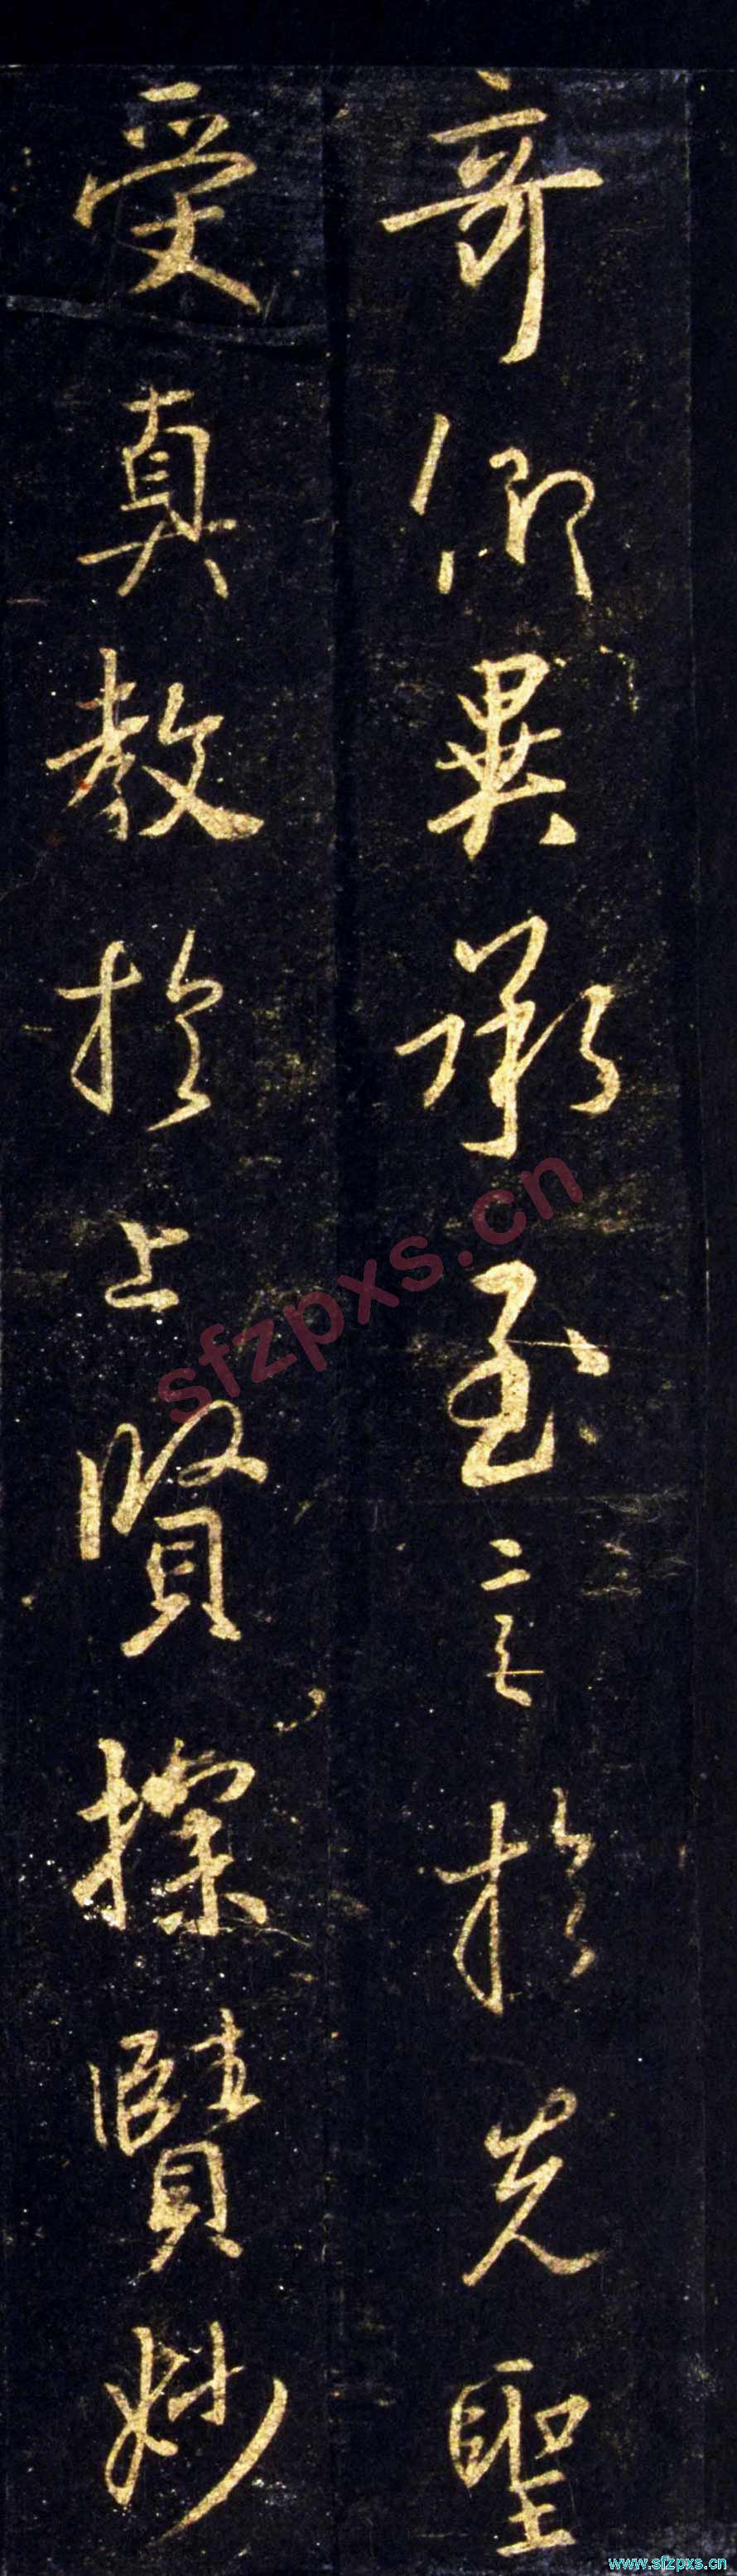 奇仰異承至言於先聖
受真教於上賢探賾妙
sfzpxs.cn
www.sfzpxs.cn